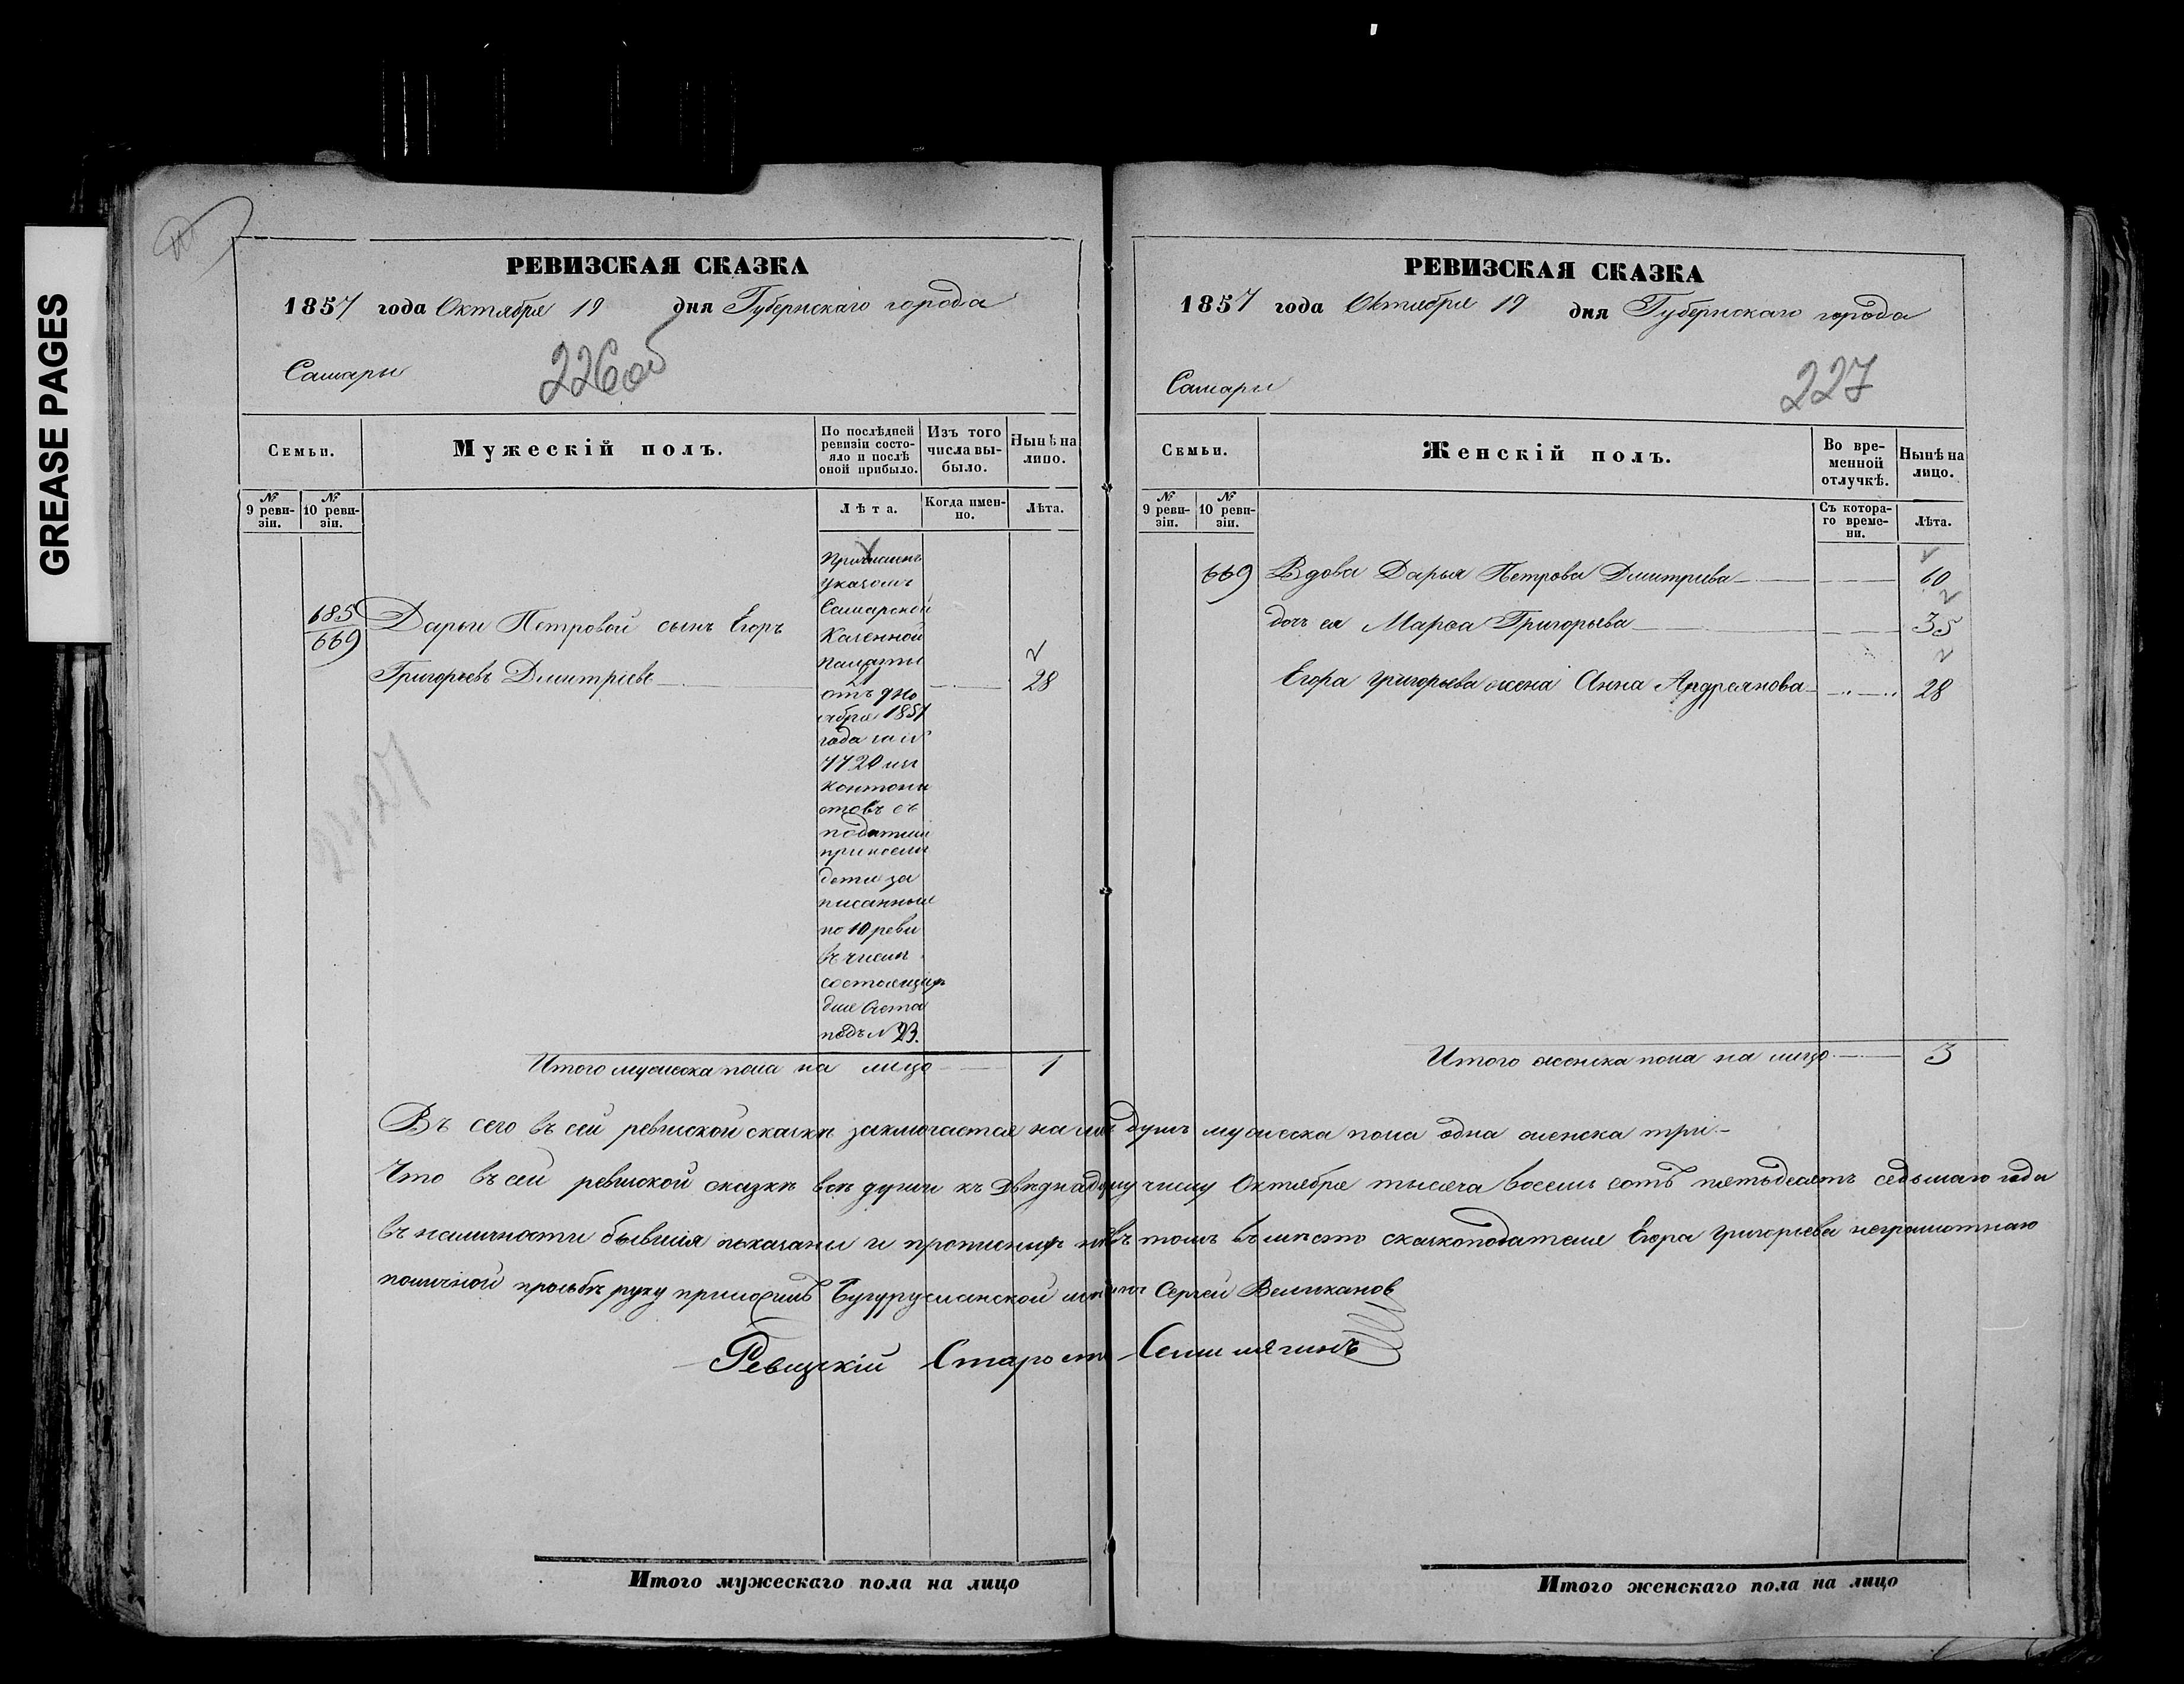 GREASE PAGES
РЕВИЗСКАЯ СКАЗКА
1857 года Октября 19 дня Губернскаго города
Самары
226об
Семьи.
Мужескій полъ.
По послѣдней ревизіи состояло и послѣ оной прибыло.
Изъ того числа выбыло.
Нынѣ на лицо.
№ 9 ревизіи.
№ 10 ревизіи.
Лѣта.
Когда именно.
Лѣта.
Причисленъ
указомъ
Самарской
Казенной
палаты
отъ 9 но
ября 1851
года за №
7720 изъ
кантони
стовъ съ
податми
записанныи
по 10 реви
въ числѣ
состоящихъ
для счета
подъ № 23.
685
669
Дарьи Петровой сынъ Егоръ
Григорьевъ Дмитріевъ
28
Итого мужеска пола на лицо 1
РЕВИЗСКАЯ СКАЗКА
1857 года Октября 19 дня Губернскаго города
Самары
227
Семьи.
Женскій полъ.
Во временной отлучкѣ.
Нынѣ на лицо.
№ 9 ревизіи.
№ 10 ревизіи.
Съ котораго времени.
Лѣта.
669 Вдова Дарья Петрова Дмитрива 60
дочь ея Марѳа Григорьева 35
Егора Григорьева жена Анна Андреянова 28
Итого женска пола на лицо 3
Въ сего въ сей ревиской сказкѣ заключается на лицо душъ мужеска пола одна женска три
Что въ сей ревиской сказкѣ всѣ души къ двѣнадцатому числу Октября тысяча восемь сотъ пятьдесятъ седьмаго года
въ наличности бывшія показаны и прописныхъ нѣтъ въ томъ въ мѣсто сказкоподателя Егора Григорьева неграмотнаго
поличной просьбѣ руку приложилъ Бугурусланской мѣщанинъ Сергей Великановъ
Ревизскій Староста Семи
Итого мужескаго пола на лицо
Итого женскаго пола на лицо